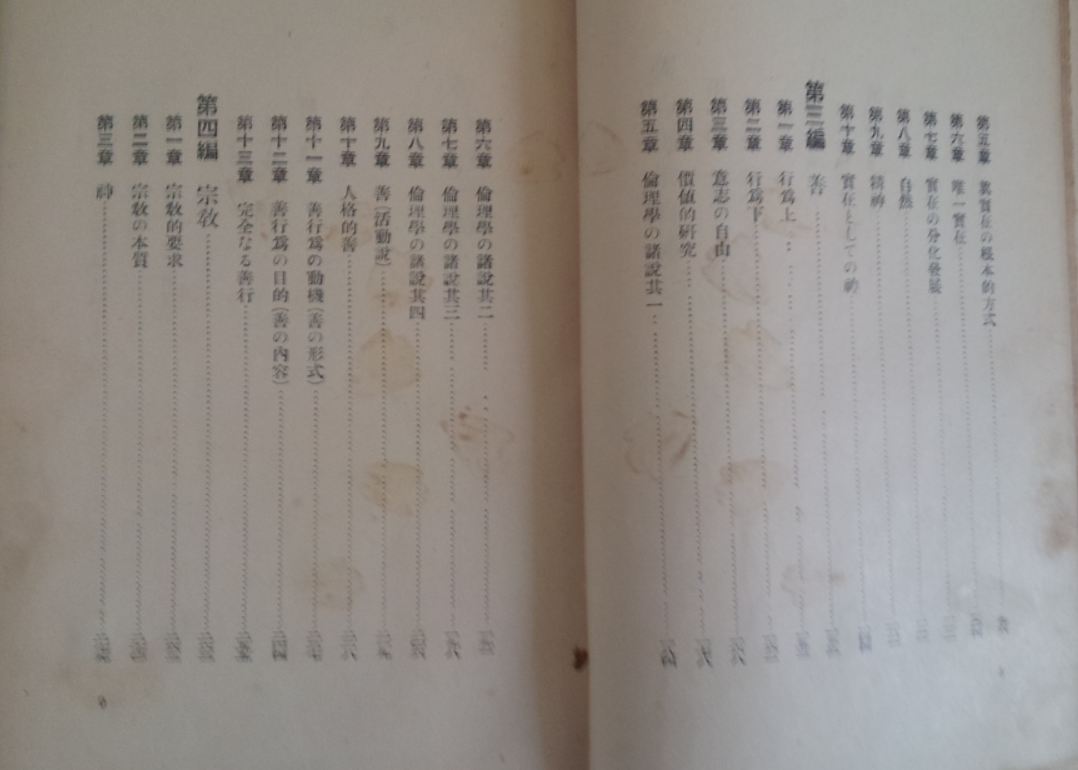 第五章 眞實在の根本的方式
第六章 唯一實在
第七章 實在の分化發展
第八章 自然
第九章 精神
第十章 實在としての神
第三編 善
第一章 行爲上
第二章 行爲下
第三章 意志の自由
第四章 價値的硏究
第五章 倫理學の諸說其一
第六章 倫理學の諸說其二
第七章 倫理學の諸說其三
第八章 倫理學の諸說其四
第九章 善(活動說)
第十章 人格的善
第十一章 善行爲の動機(善の形式)
第十二章 善行爲の目的(善の內容)
第十三章 完全なる善行
第四編 宗敎
第一章 宗敎的要求
第二章 宗敎の本質
第三章 神